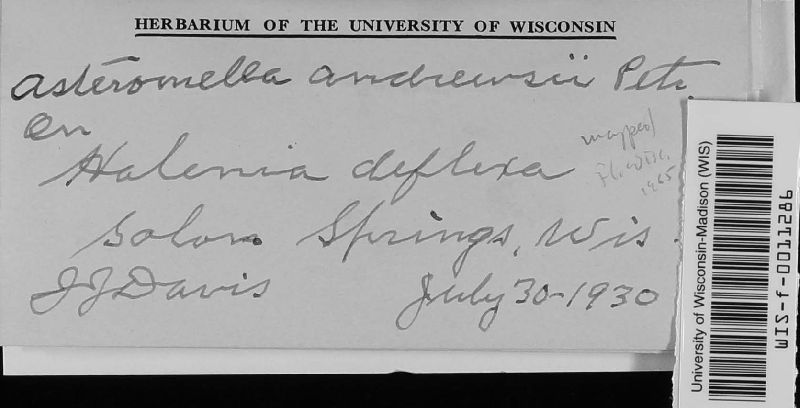 HERBARIUM OF THE UNIVERSITY OF WISCONSIN
Asteromella andrewsii Petr.
on
Halenia deflexa
mapped
Fl. Wisc.
1965
Solon Springs, Wis.
JJ Davis July 30-1930
University of Wisconsin-Madison (WIS)
WIS-f-0011286